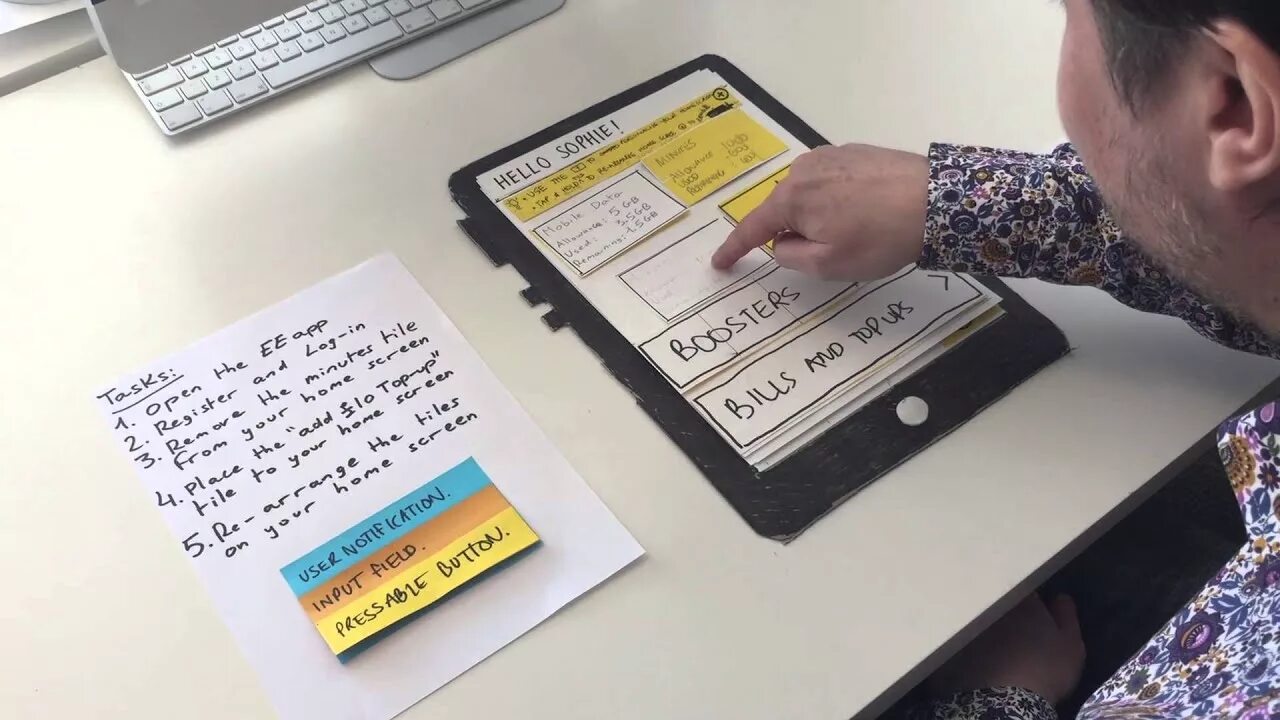 Tasks:
1. Open the EE app
2. Register and Log-in
3. Remove the minutes tile
from your home screen
4. Place the "add £10 Top-up"
tile to your home screen
5. Re-arrange the tiles
on your home screen
USER NOTIFICATION.
INPUT FIELD.
PRESSABLE BUTTON.
HELLO SOPHIE!
USE THE
TO
YOUR HOME SCREEN
TAP & HOLD TO RE-ARRANGE HOME SCREEN
Mobile Data
Allowance: 5 GB
Used: 3.5GB
Remaining: 1.5GB
MINUTES
Allowance
USED
REMAINING
BOOSTERS
BILLS AND TOP UPS